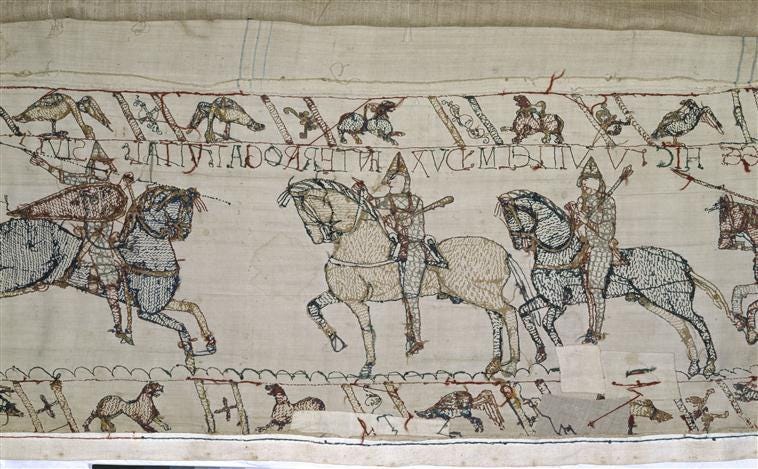 GE HIC VVILLELM DVX INTERROGAT VITAL SIVI